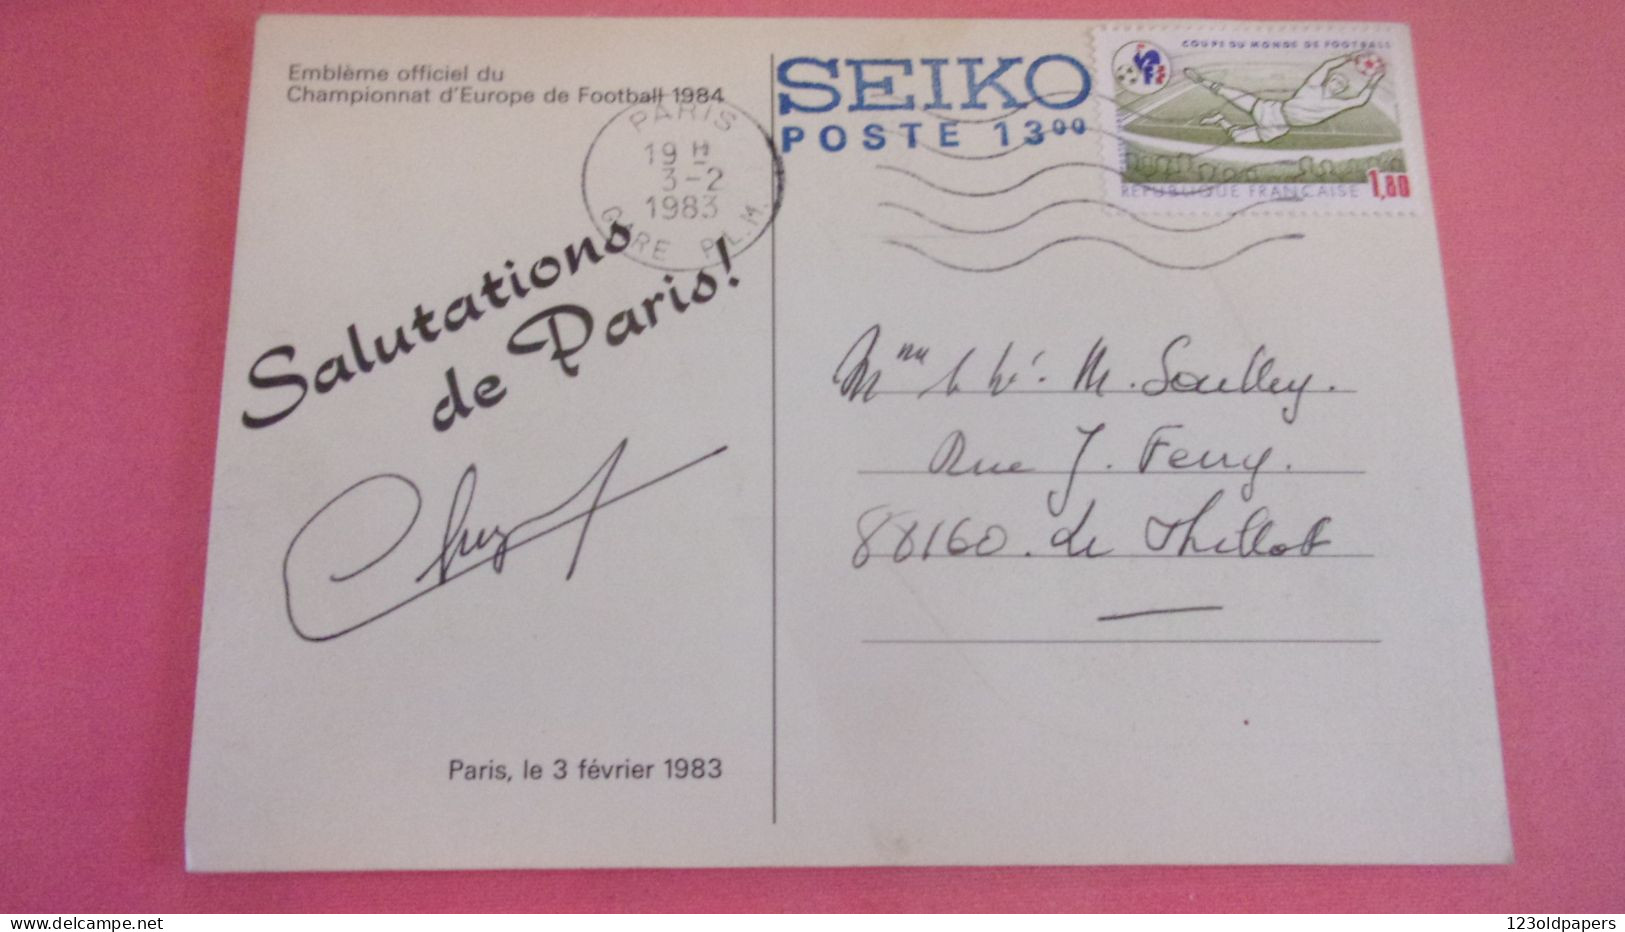 Emblème officiel du
Championnat d'Europe de Football 1984
PARIS
19 H
3-2
1983
GARE P.L.M.
Salutations
de Paris!
Paris, le 3 février 1983
SEIKO
POSTE 13⁰⁰
COUPE DU MONDE DE FOOTBALL
FFF
REPUBLIQUE FRANÇAISE 1,80
M. 
Rue J. Ferry.
88160. Le Thillot
123oldpapers
delcampe.net